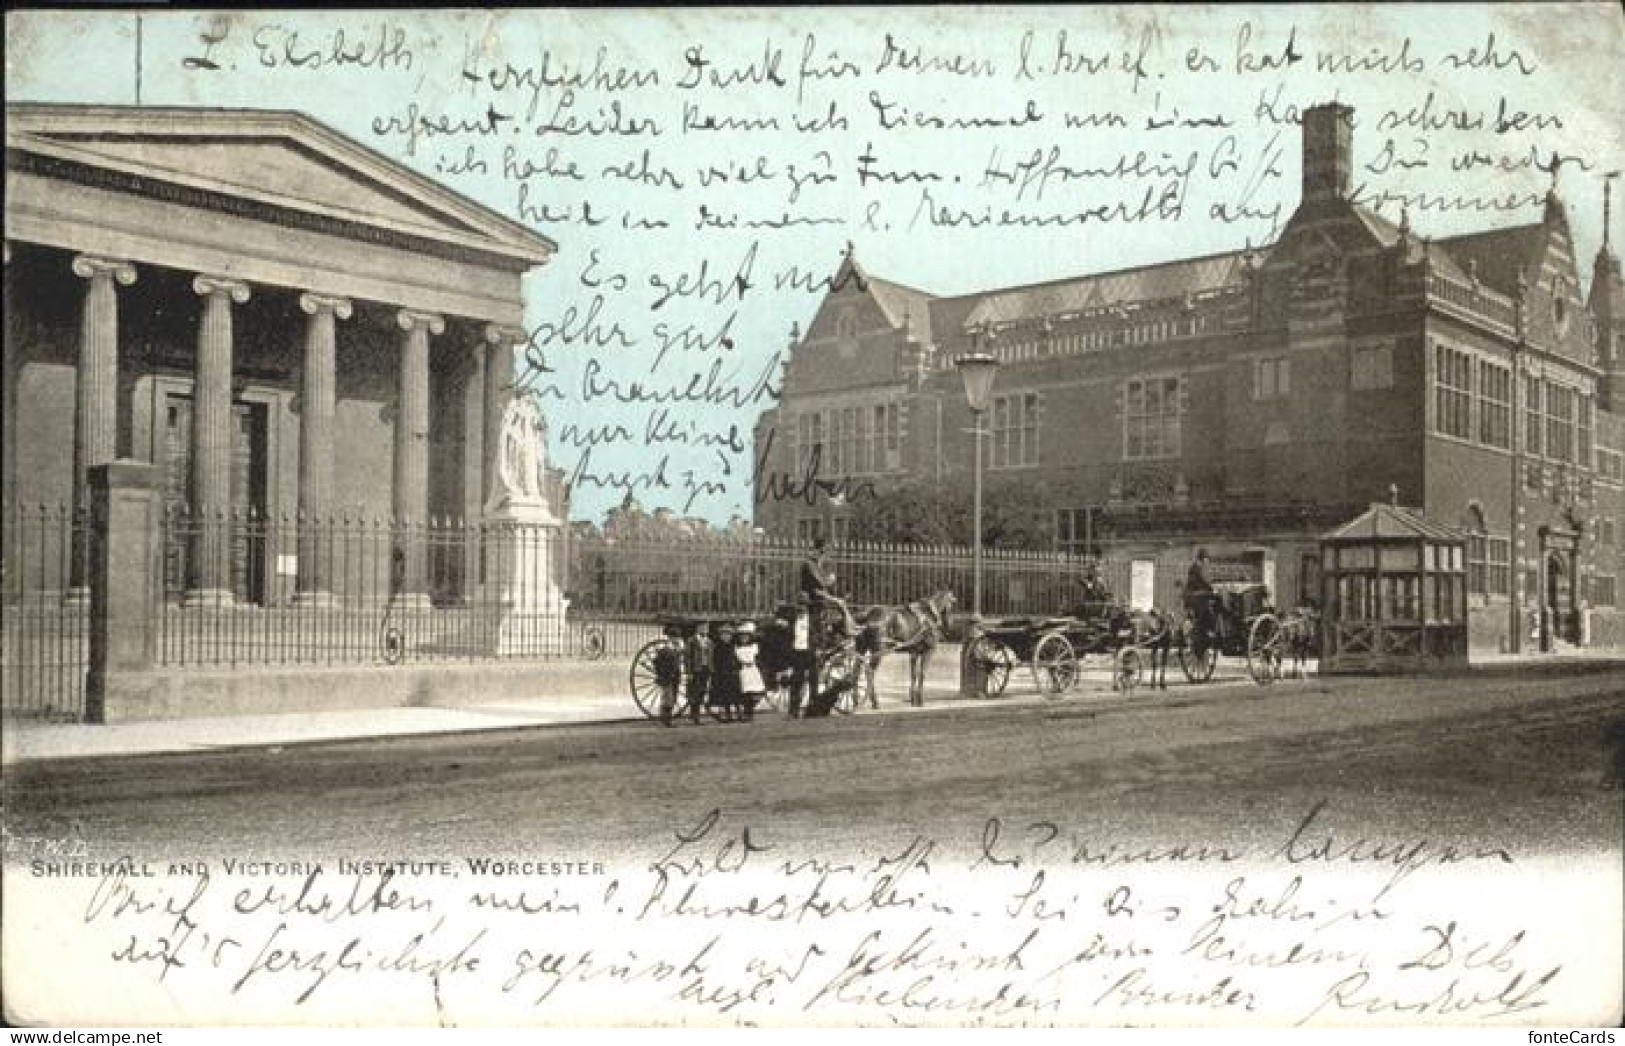 L. Elsbeth,
Herzlichen Dank für Deinen l. Brief. er hat mich sehr
erfreut. Leider kann ich diesmal nur eine Karte schreiben
ich habe sehr viel zu tun. Hoffentlich bist Du wieder
heil in Deinem l. Marienwerth angekommen.
Es geht mir
sehr gut
Du brauchst
nur keine
Angst zu haben
E.T.W.D.
SHIREHALL AND VICTORIA INSTITUTE, WORCESTER
Bald wirst du einen langen
Brief erhalten, mein l. Schwesterlein. Sei bis dahin
auf's herzlichste gegrüsst und geküsst von Deinem Dich
liebenden Bruder Rudolf
DELCAMPE.NET
fonteCards